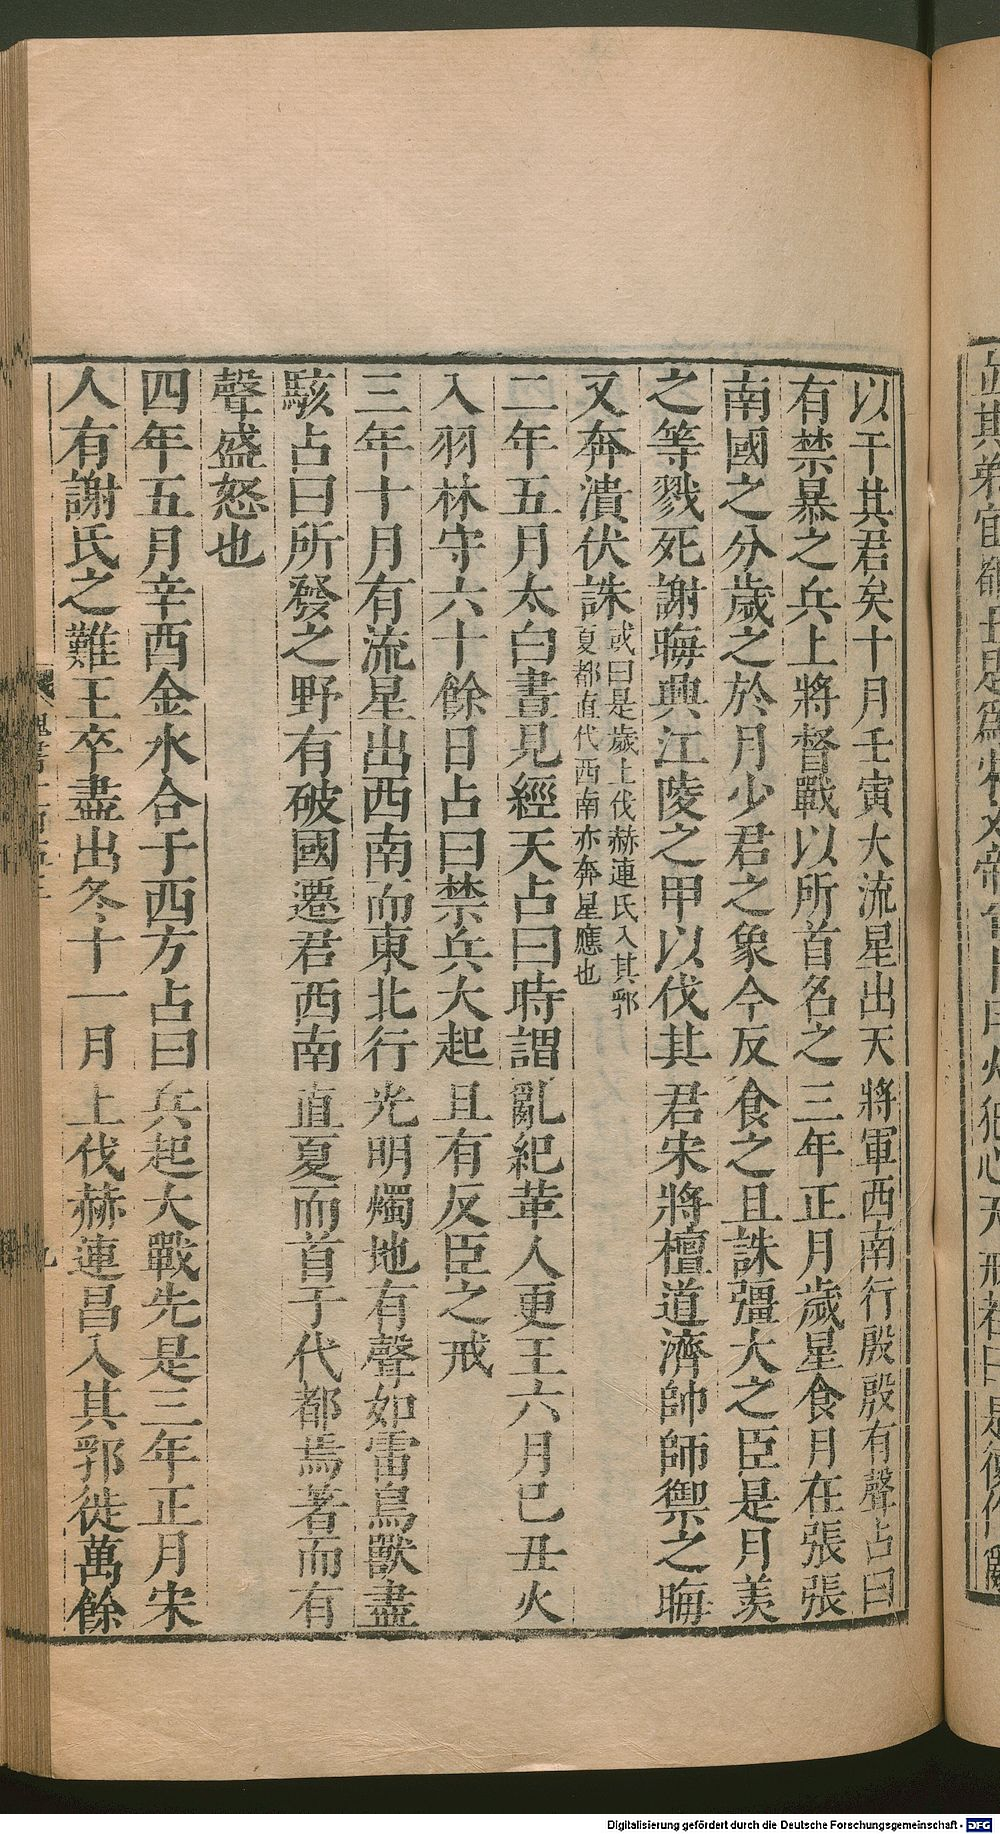 以干其君矣十月壬寅大流星出天將軍西南行殷殷有聲占曰
有禁暴之兵上將督戰以所首名之三年正月歲星食月在張張
南國之分歲之於月少君之象今反食之且誅彊大之臣是月羡
之等戮死謝晦興江陵之甲以伐其君宋將檀道濟帥師禦之晦
又奔潰伏誅或曰是歲上伐赫連氏入其郛
夏都直代西南亦奔星應也
二年五月太白晝見經天占曰時謂亂紀革人更王六月己丑火
入羽林守六十餘日占曰禁兵大起且有反臣之戒
三年十月有流星出西南而東北行光明燭地有聲如雷鳥獸盡
駭占曰所發之野有破國遷君西南直夏而首于代都焉著而有
聲盛怒也
四年五月辛酉金水合于西方占曰兵起大戰先是三年正月宋
人有謝氏之難王卒盡出冬十一月上伐赫連昌入其郛徙萬餘
九
Digitalisierung gefördert durch die Deutsche Forschungsgemeinschaft - DFG